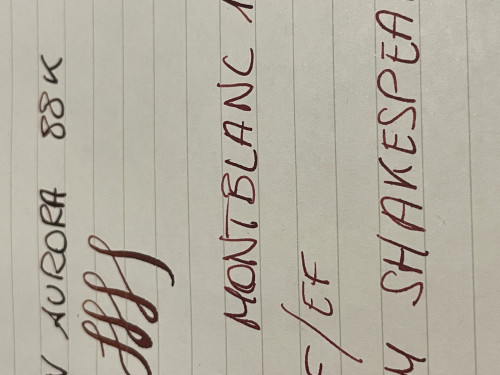 AURORA 88K
MONTBLANC
F/EF
SHAKESPEA